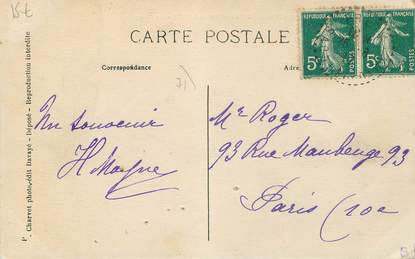 15€
CARTE POSTALE
Correspondance
Adre
RÉPUBLIQUE FRANÇAISE
5c
RÉPUBLIQUE FRANÇAISE
5c
Charvet photo-édit Déposé - Reproduction interdite
Un souvenir
Mr Roger
93 Rue Maubeuge 93
Paris (10e